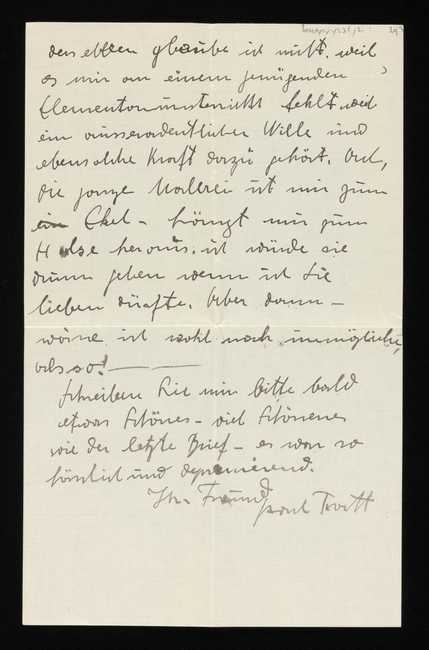 den ebben glaube ich nicht, weil
es mir an einem genügenden
Elementarunterricht fehlt, weil
ein ausserordentlicher Wille und
ebensolche Kraft dazu gehört. Und,
die ganze Malerei ist mir zum
ein Ekel – hängt mir zum
Halse heraus. ich würde sie
drum geben wenn ich Sie
lieben dürfte. Aber dann –
wäre ich wohl noch unmöglicher,
als so! –
Schreiben Sie mir bitte bald
etwas Schönes – viel Schöneres
wie der letzte Brief – es war so
förmlich und deprimierend.
Ihr Freund